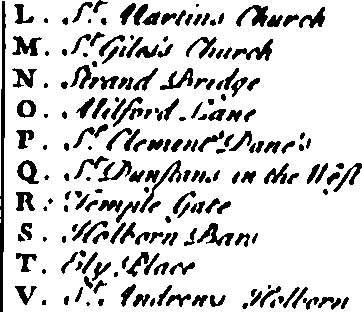 L. St. Martins Church
M. St Giles's Church
N. Strand Bridge
O. Milford Lane
P. St Clement Dane's
Q. St Dunstans in the West
R. Temple Gate
S. Holborn Bars
T. Ely Place
V. St. Andrews Holborn